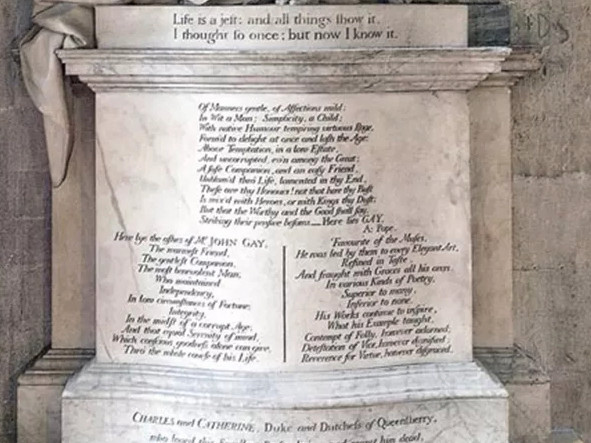 Life is a jeſt: and all things ſhow it.
I thought ſo once; but now I know it.
Of Manners gentle, of Affections mild;
In Wit a Man; Simplicity, a Child;
With native Humour temp'ring virtuous Rage,
Form'd to delight at once and laſh the Age:
Above Temptation, in a low Eſtate,
And uncorrupted, ev'n among the Great;
A ſafe Companion, and an eaſy Friend,
Unblam'd thro' Life, lamented in thy End,
Theſe are thy Honours! not that here thy Buſt
Is mix'd with Heroes, or with Kings thy Duſt;
But that the Worthy and the Good ſhall ſay,
Striking their penſive boſoms — Here lies GAY.
A: Pope.
Here lye the aſhes of Mr. JOHN GAY,
The warmeſt Friend,
The gentleſt Companion,
The moſt benevolent Man;
Who maintained
Independency,
In low circumſtances of Fortune;
Integrity,
In the midſt of a corrupt Age;
And that equal Serenity of mind,
Which conſcious goodneſs alone can give,
Thro' the whole courſe of his Life.
Favourite of the Muſes,
He was led by them to every Elegant Art,
Refined in Taſte
And fraught with Graces all his own.
In various Kinds of Poetry,
Superior to many,
Inferior to none.
His Works continue to inſpire,
What his Example taught,
Contempt of Folly, however adorned;
Deteſtation of Vice, however dignified;
Reverence for Virtue, however diſgraced.
CHARLES and CATHERINE, Duke and Dutcheſs of Queenſberry,
who loved this him dead,